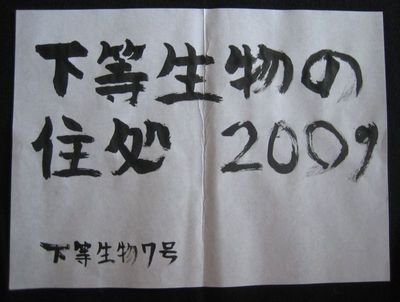 下等生物の
住処 2009
下等生物7号